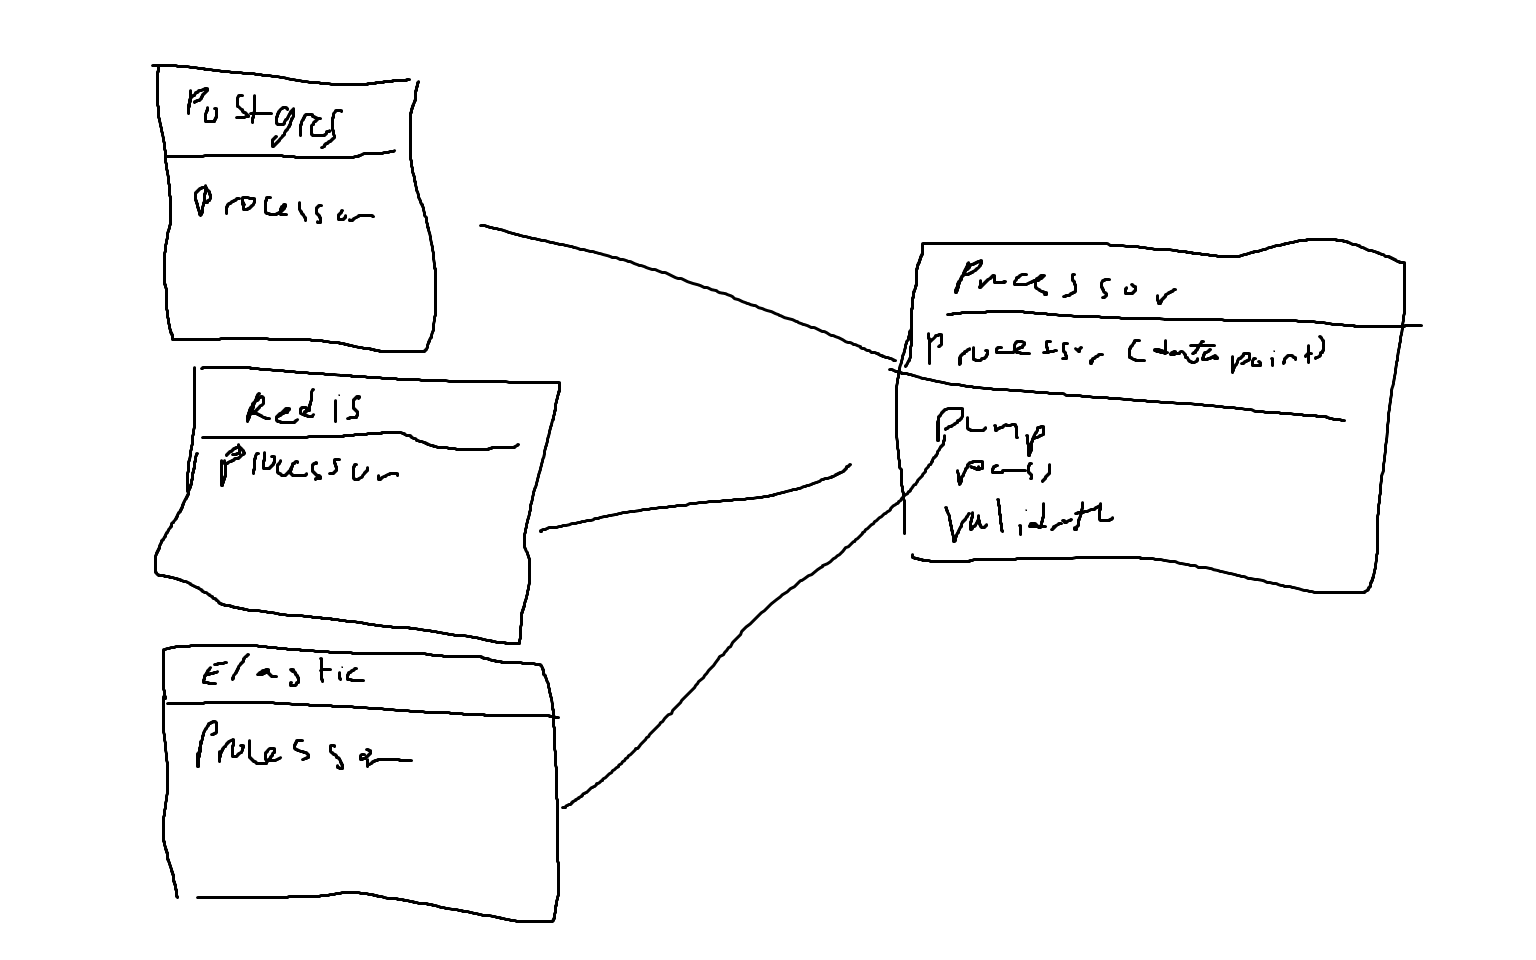 Postgres
Processor
Redis
Processor
Elastic
Processor
Processor
Processor (datapoint)
Pump
pass
Validate